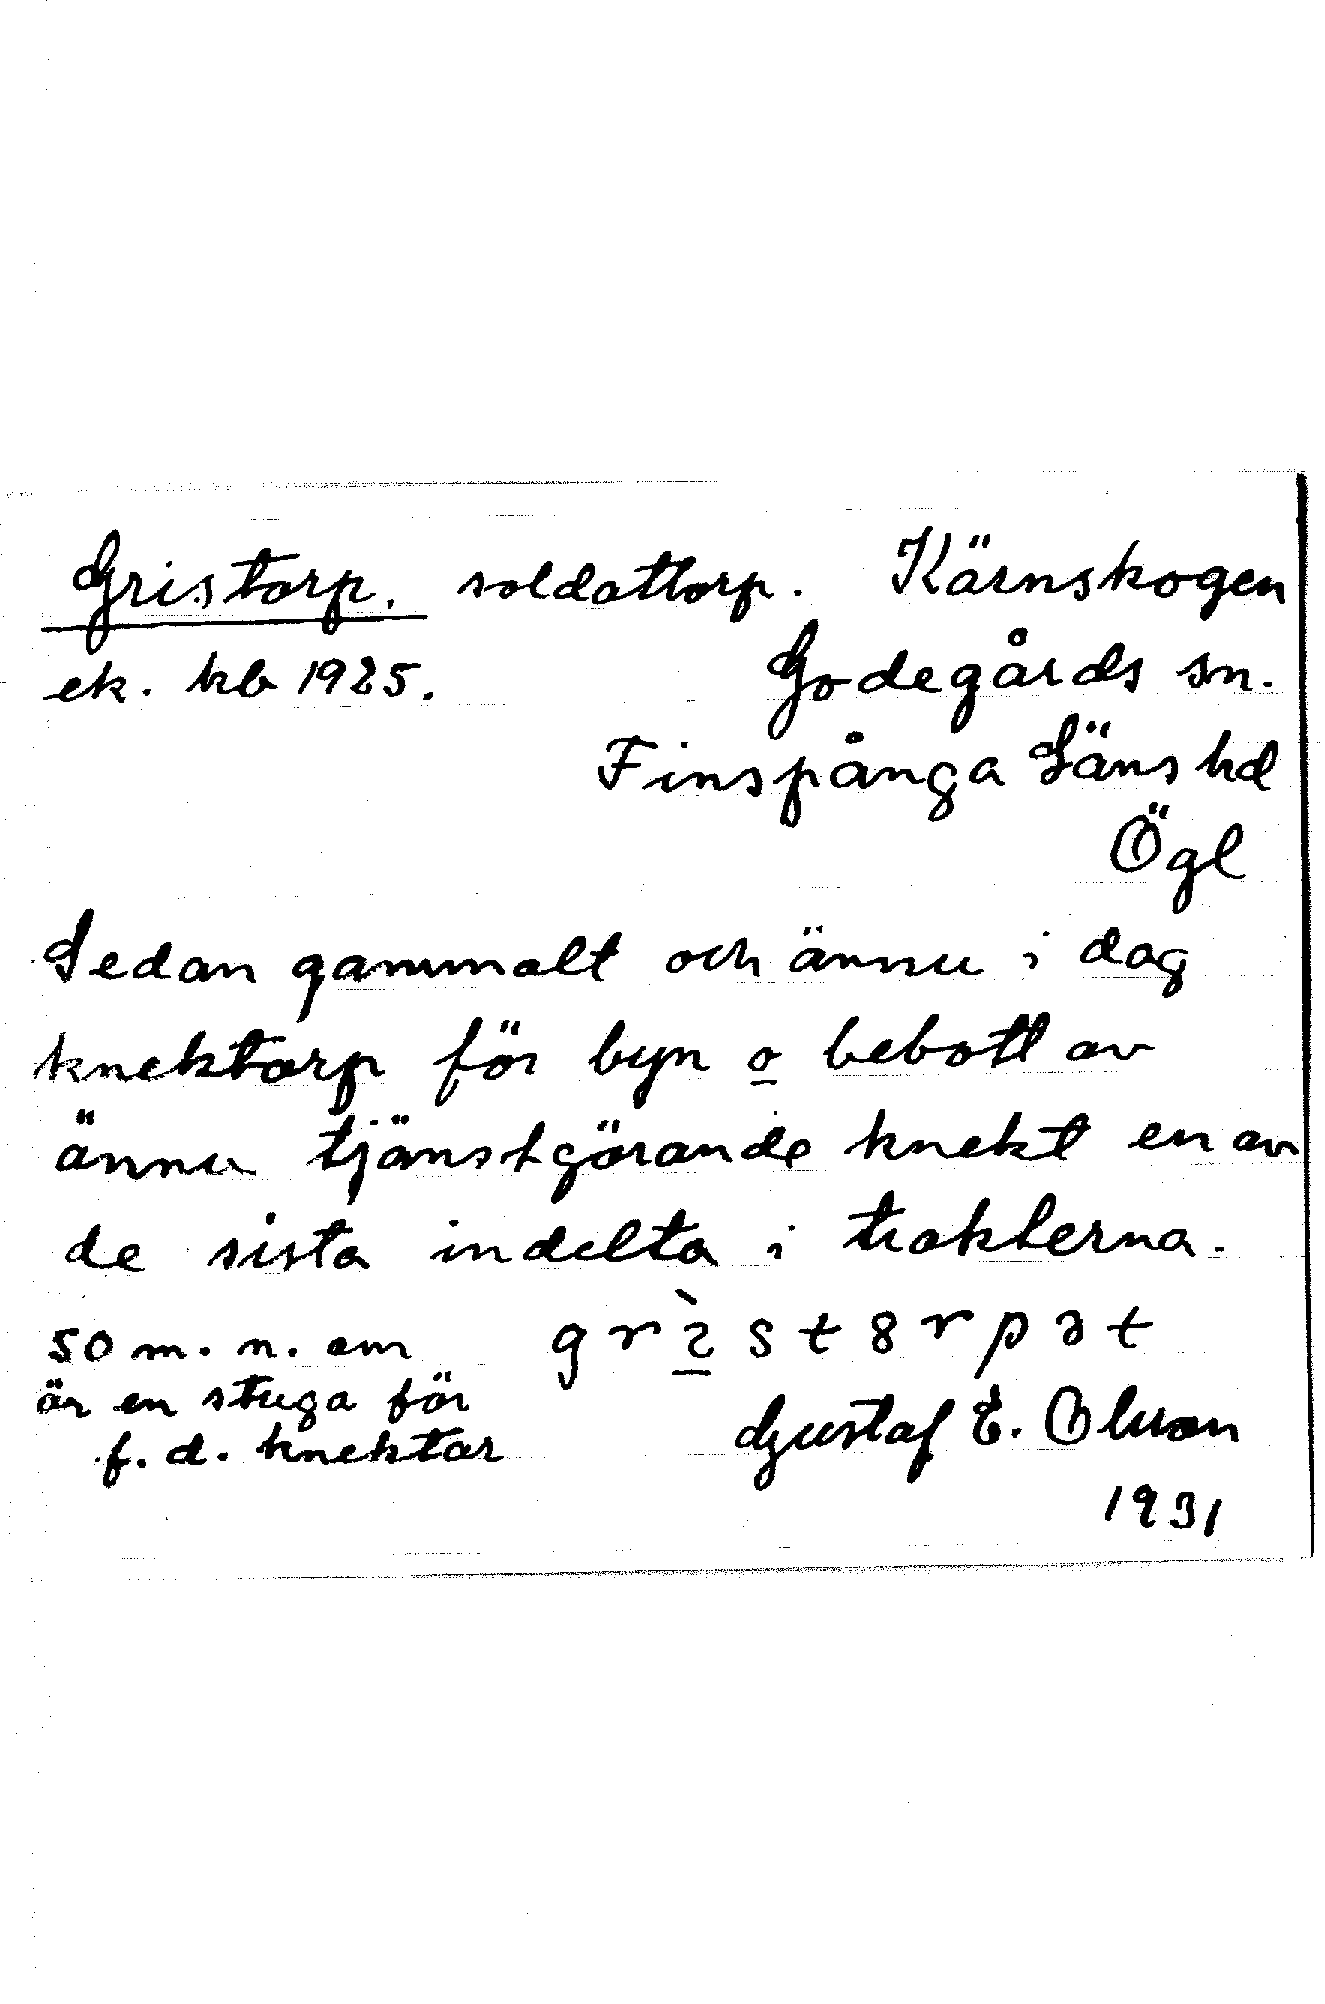 Gristorp. soldattorp. Kärnskogen
ek. kb 1925. Godegårds sn.
Finspånga Läns hd
Ögl
Sedan gammalt och ännu i dag
knektorp för byn o bebott av
ännu tjänstgörande knekt en av
de sista indelta i trakterna.
50 m. n. om
är en stuga för
f. d. knektar
Gustaf E. Olsson
1931